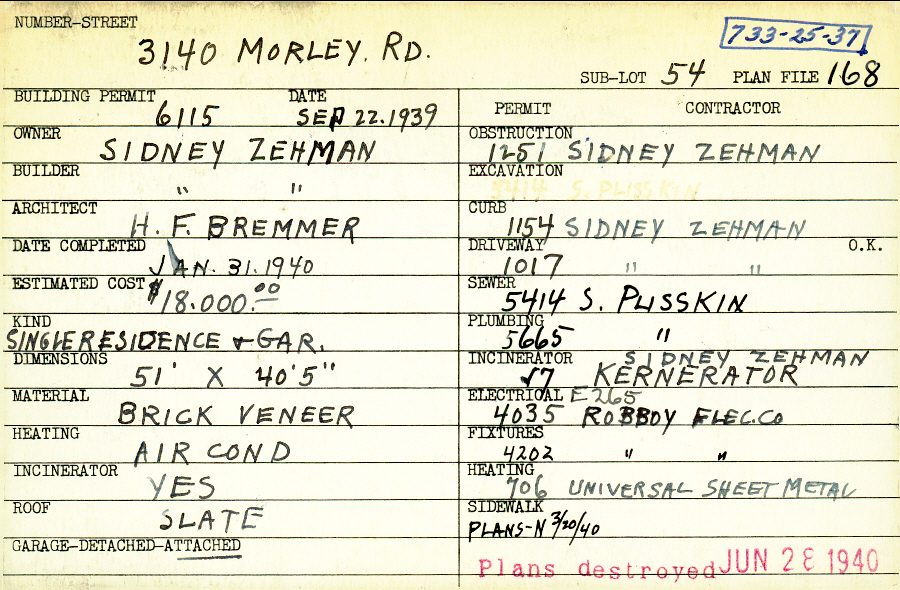 NUMBER-STREET
3140 MORLEY. RD.
733-25-37
SUB-LOT 54 PLAN FILE 168
BUILDING PERMIT DATE
6115 SEP 22.1939
OWNER
SIDNEY ZEHMAN
BUILDER
" "
ARCHITECT
H. F. BREMMER
DATE COMPLETED
JAN. 31. 1940
ESTIMATED COST $18.000.00
KIND
SINGLE RESIDENCE + GAR.
DIMENSIONS
51' X 40'5"
MATERIAL
BRICK VENEER
HEATING
AIR COND
INCINERATOR
YES
ROOF
SLATE
GARAGE-DETACHED-ATTACHED
PERMIT CONTRACTOR
OBSTRUCTION
1251 SIDNEY ZEHMAN
EXCAVATION
5414 S. PLISSKIN
CURB
1154 SIDNEY ZEHMAN
DRIVEWAY O.K.
1017 " "
SEWER
5414 S. PLISSKIN
PLUMBING
5665 "
INCINERATOR SIDNEY ZEHMAN
KERNERATOR
ELECTRICAL E265
4035 ROBBOY ELEC.CO
FIXTURES
4202 " "
HEATING
706 UNIVERSAL SHEET METAL
SIDEWALK
PLANS-N 3/20/40
Plans destroyed JUN 28 1940